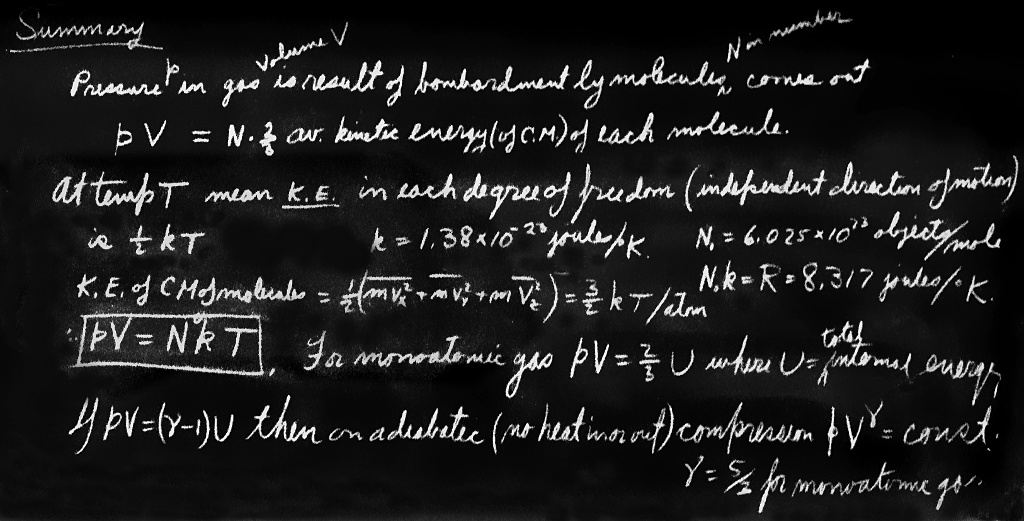 Summary
Pressure p in gas volume V is result of bombardment by molecules, N in number comes out
pV = N·⅔ av. kinetic energy (of C.M) of each molecule.
At temp T mean K.E. in each degree of freedom (independent direction of motion)
is ½ kT k = 1.38×10⁻²³ joules/°K. N₀ = 6.025×10²³ objects/mole
N₀k = R = 8.317 joules/°K.
K.E. of CM of molecules = ½(mVₓ² + mVᵧ² + mV_z²) = 3/2 kT/atom
∴ pV = NkT. For monoatomic gas pV = ⅔ U where U = total internal energy
If pV = (γ-1)U then on adiabatic (no heat in or out) compression pV^γ = const.
γ = 5/2 for monoatomic gas.